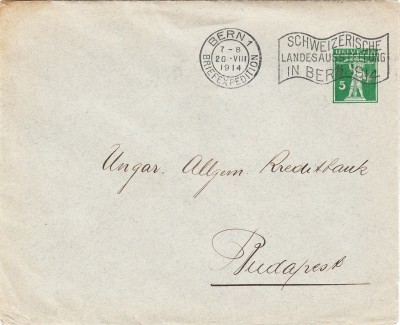 BERN 1
7-8
20·VIII
1914
BRIEFEXPEDITION
SCHWEIZERISCHE
LANDESAUSSTELLUNG
IN BERN 1914
HELVETIA
5
Ungar. Allgem. Kreditbank
Budapest